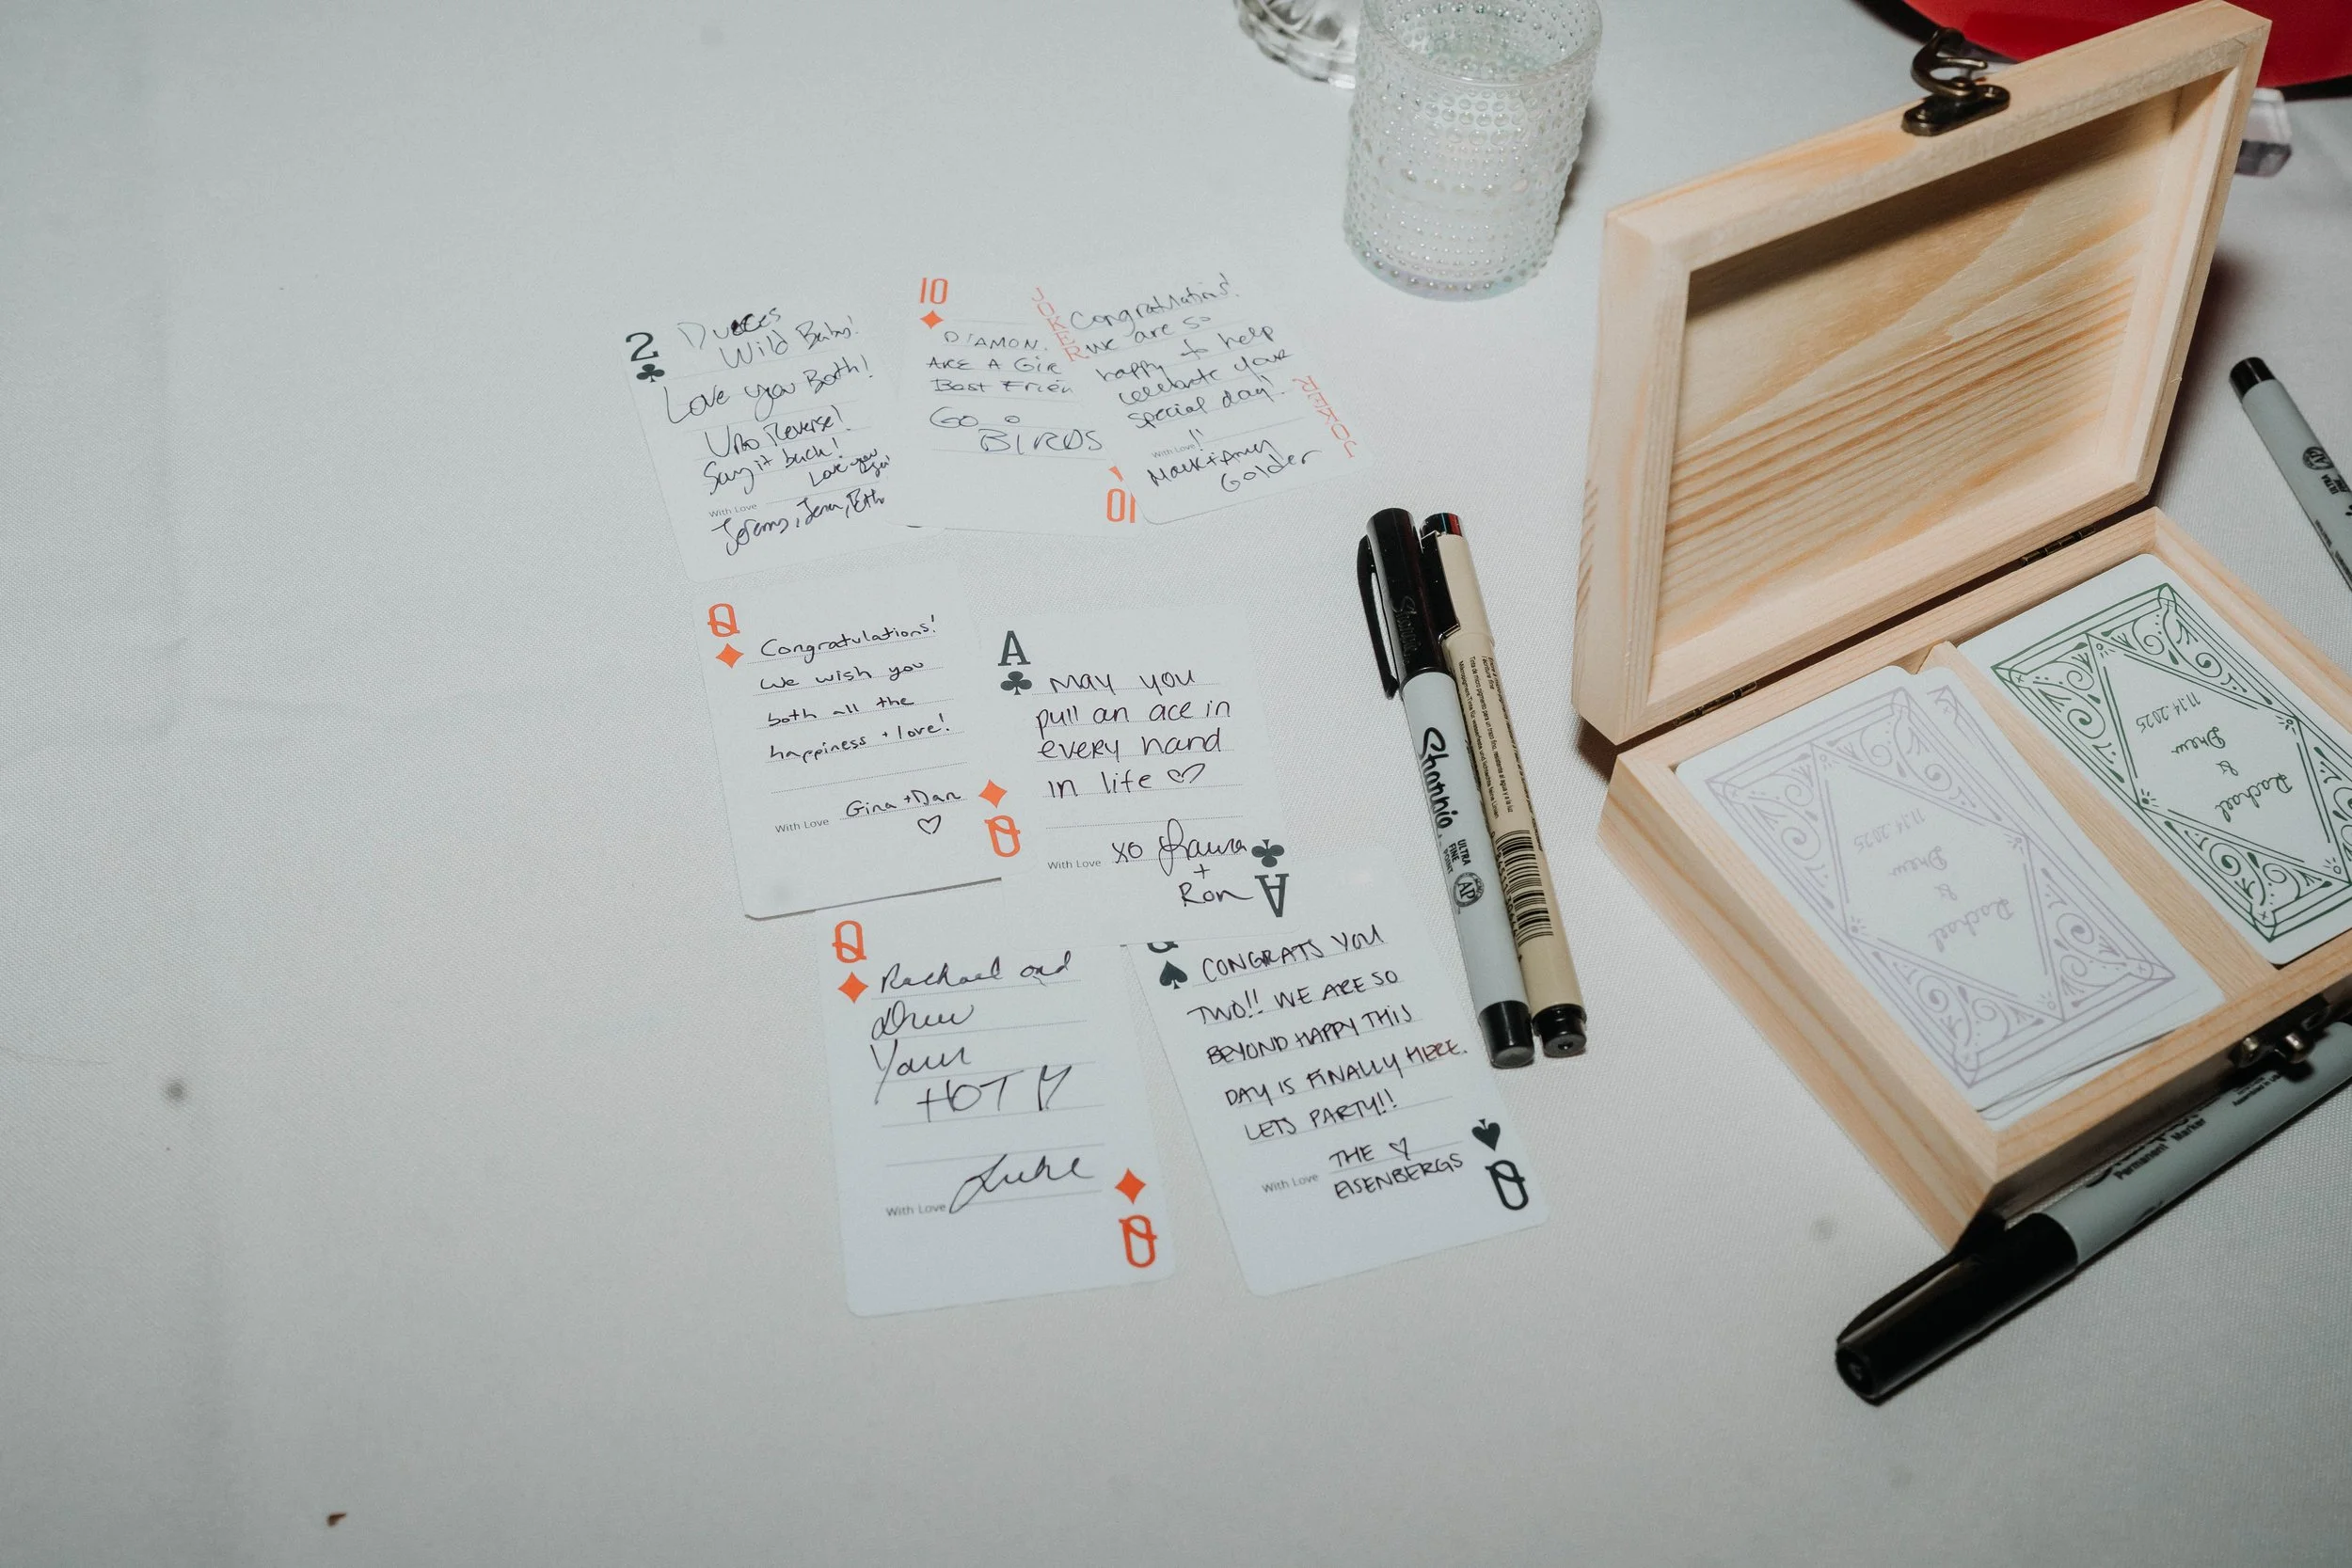 2
Dueces
Wild Baby!
Love you Both!
Uno Reverse!
Say it back!
Love you
With Love
Jeremy, Jenn, Beth
10
DIAMON
ARE A GIR
Best Frien
GO
BIRDS
10
JOKER
Congratulations!
we are so
happy to help
celebrate your
special day!
With Love
Mark + Amy
Golder
JOKER
Q
Congratulations!
we wish you
both all the
happiness + love!
With Love Gina + Dan
Q
A
May you
pull an ace in
every hand
in life
With Love XO Laura
+
Ron
A
Q
Rachael and
Drew
Your
HOT
With Love Luke
Q
CONGRATS YOU
TWO!! WE ARE SO
BEYOND HAPPY THIS
DAY IS FINALLY HERE.
LETS PARTY!!
THE
With Love EISENBERGS
Q
Sharpie
ULTRA
FINE
POINT
AP
Rachael
&
Drew
11.14.2025
Rachael
&
Drew
11.14.2025
Permanent Marker
AP
ULTRA